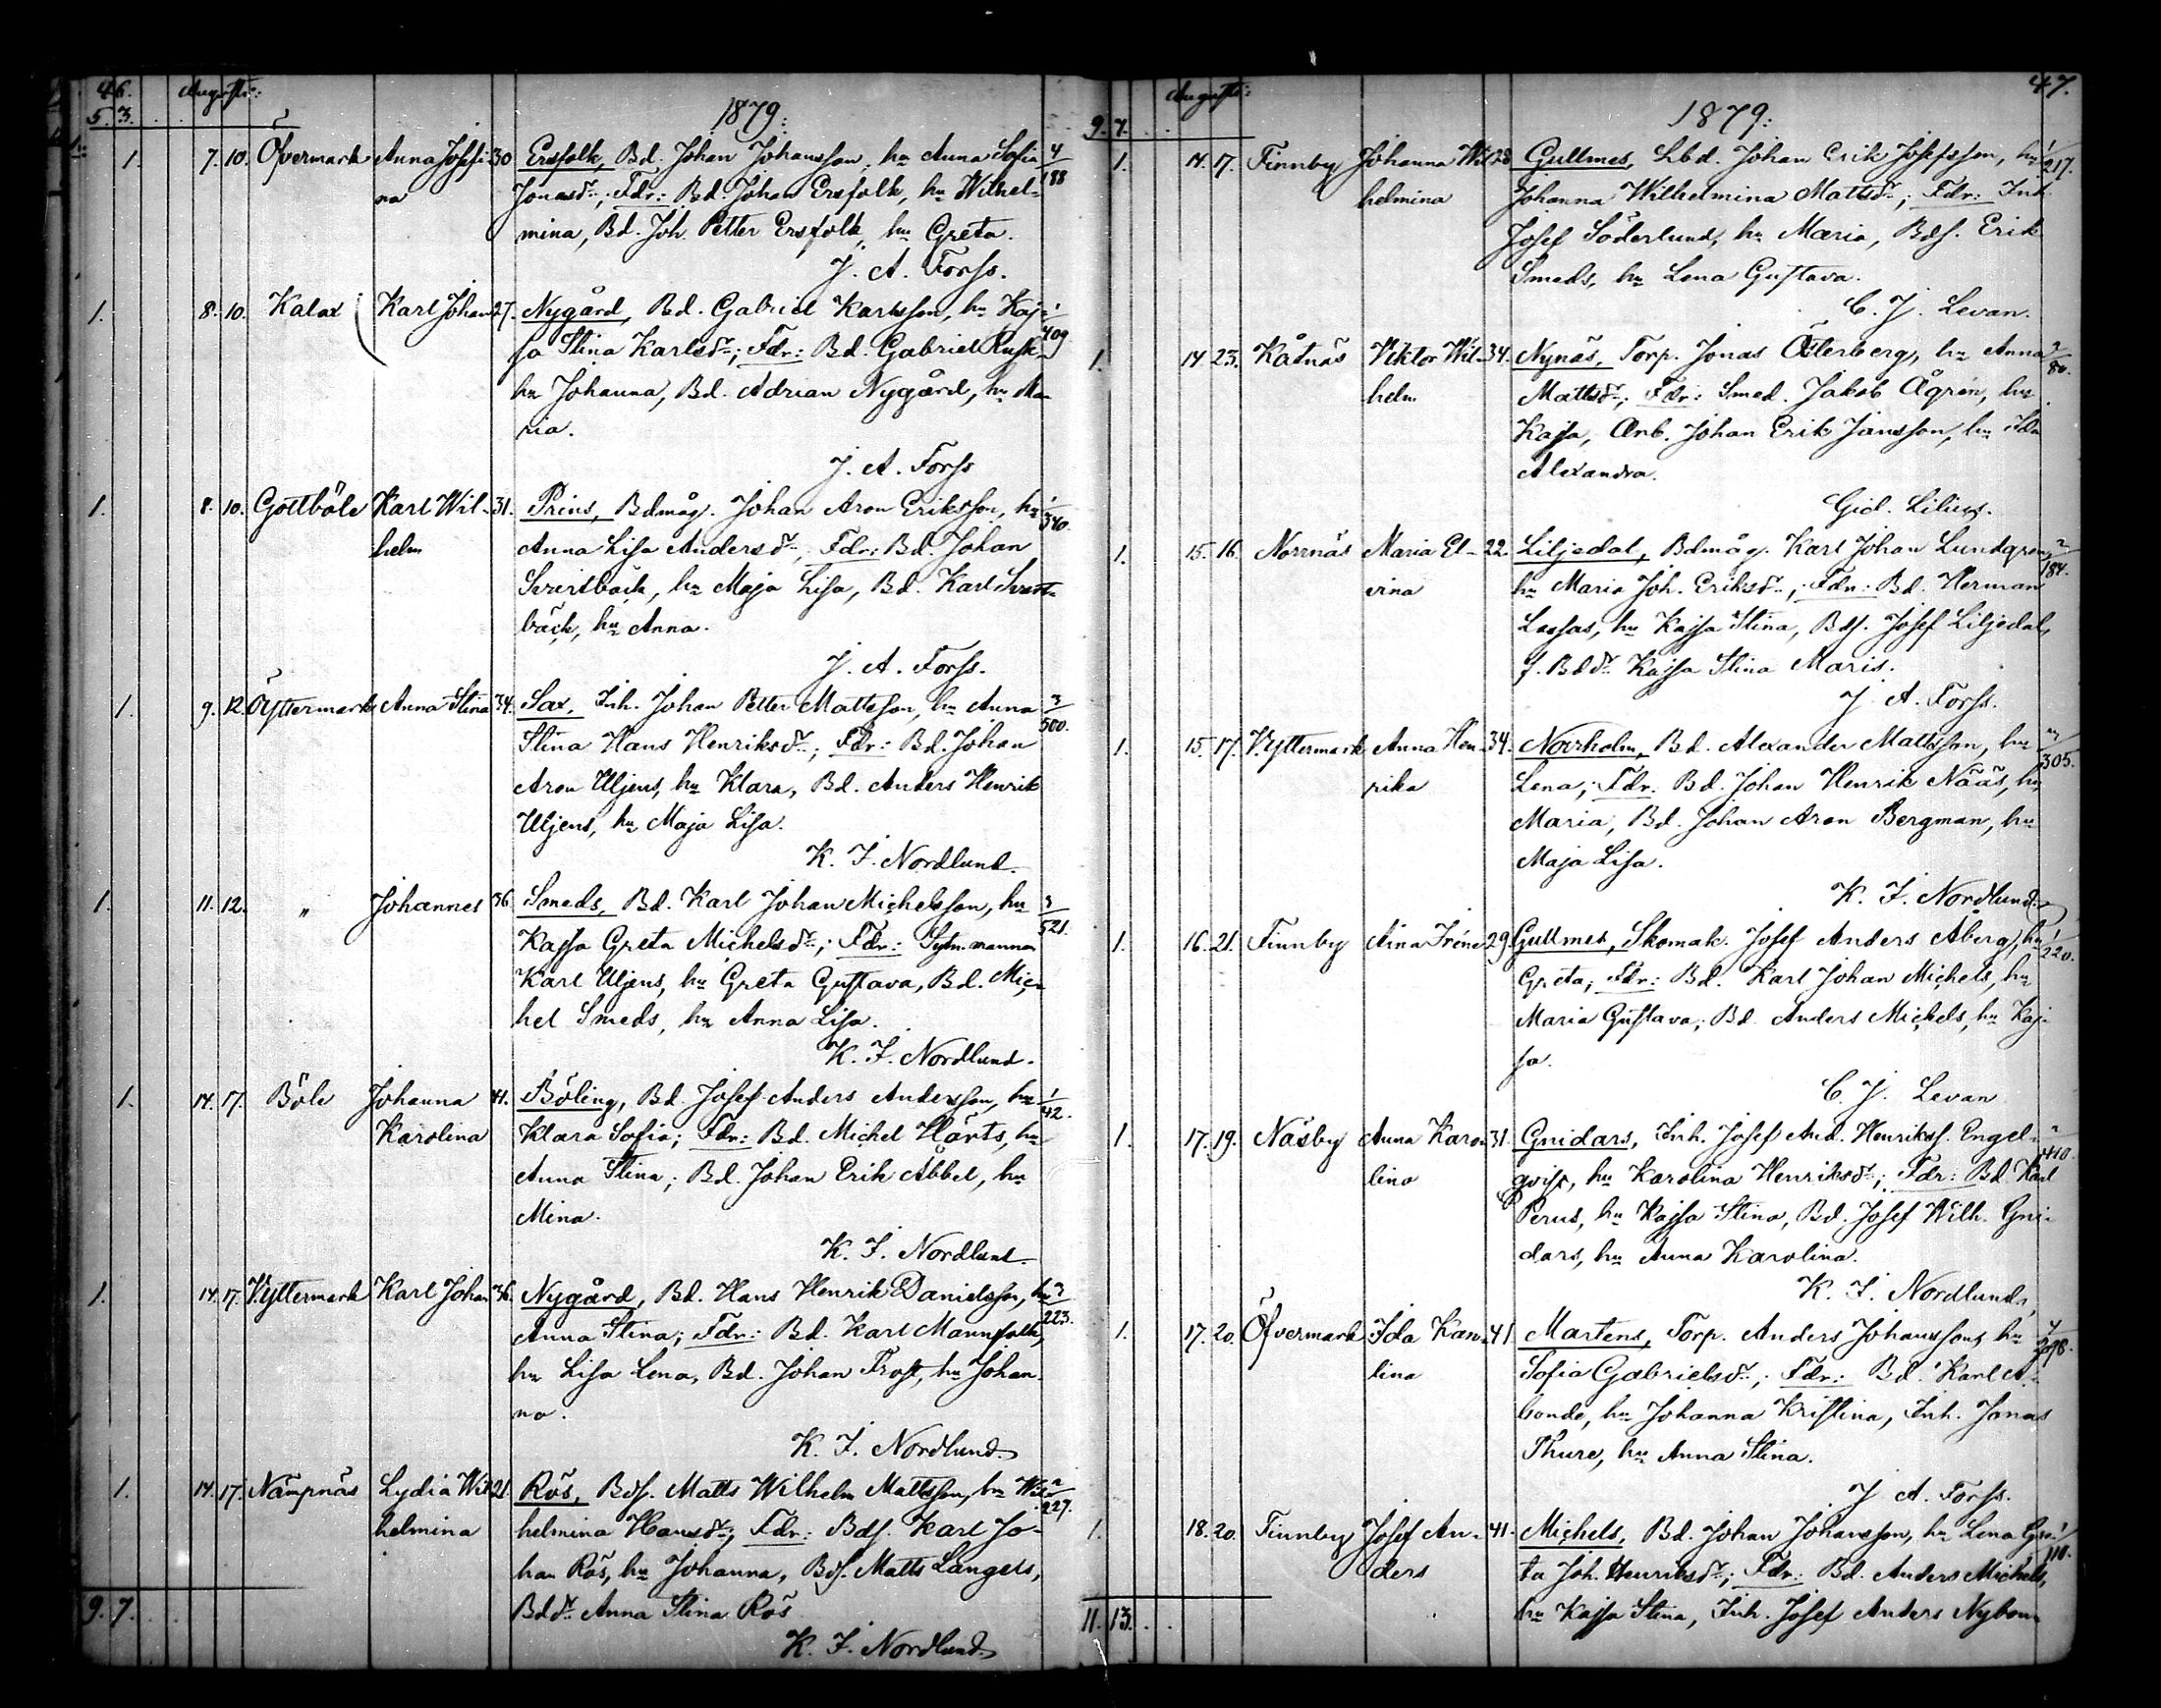 46.
Augusti:
1879:
5. 3.
1. 7. 10. Öfvermark Anna Josefi- 30 Ersfolk, Bd. Johan Johansson, hu Anna Sofia 4/188
na Jonasdr; Fdr: Bd. Johan Ersfolk, hu Wilhel-
mina, Bd. Joh. Petter Ersfolk, hu Greta.
J. A. Forss.
1. 8. 10. Kalax Karl Johan 27. Nygård, Bd. Gabriel Karlsson, hu Kaj- 1/409
sa Stina Karlsdr; Fdr: Bd. Gabriel Rusk
hu Johanna, Bd. Adrian Nygård, hu Ma-
ria.
J. A. Forss
1. 8. 10. Gottböle Karl Wil- 31. Prins, Bdmåg. Johan Aron Eriksson, hu 1/340.
helm Anna Lisa Andersdr, Fdr: Bd. Johan
hu Maja Lisa, Bd. Karl
bäck, hu Anna.
J. A. Forss.
1. 9. 12. Öyttermark Anna Stina 34. Sax, Inh. Johan Petter Mattsson, hu Anna 3/500.
Stina Hans Henriksdr; Fdr: Bd. Johan
Aron Uljens, hu Klara, Bd. Anders Henrik
Uljens, hu Maja Lisa.
K. J. Nordlund.
1. 11. 12. " Johannes 36. Smeds, Bd. Karl Johan Michelsson, hu 3/521.
Kajsa Greta Michelsdr; Fdr:
Karl Uljens, hu Greta Gustava, Bd. Mic-
hel Smeds, hu Anna Lisa.
K. J. Nordlund.
1. 14. 17. Böle Johanna 41. Böling, Bd. Josef Anders Andersson, hu 1/42.
Karolina Klara Sofia; Fdr: Bd. Michel Härts, hu
Anna Stina; Bd. Johan Erik Åbbel, hu
Mina.
K. J. Nordlund.
1. 14. 17. V.yttermark Karl Johan 36. Nygård, Bd. Hans Henrik Danielsson, hu 3/223.
Anna Stina; Fdr: Bd. Karl Mannfolk,
hu Lisa Lena, Bd. Johan Frost, hu Johan-
na.
K. J. Nordlund.
1. 14. 17. Nämpnäs Lydia Wil- 21. Rös, Bds. Matts Wilhelm Mattsson, hu Wil- 2/227.
helmina helmina Hansdr; Fdr: Bds. Karl Jo-
han Rös, hu Johanna, Bds. Matts Långels,
Bddr Anna Stina Rös
9. 7. K. J. Nordlund.
47.
Augusti:
1879:
9. 7.
1. 14. 17. Finnby Johanna Wil- 28 Gullmes, Lbd. Johan Erik Josefsson, hu 1/217.
helmina Johanna Wilhelmina Mattsdr; Fdr: Inh.
Josef Söderlund, hu Maria, Bds. Erik
Smeds, hu Lena Gustava.
C. J. Levan.
1. 14. 23. Kåtnäs Viktor Wil- 34. Nynäs, Torp. Jonas Österberg, hu Anna 2/80.
helm Mattsdr; Fdr: Smed. Jakob Ågren, hu
Kajsa, Arb. Johan Erik Jansson, hu Ida
Alexandra.
Gid. Lilius.
1. 15. 16. Norrnäs Maria El- 22. Liljedal, Bdmåg. Karl Johan Lundgren, 2/184.
vina hu Maria Joh. Eriksdr; Fdr: Bd. Herman
Lassas, hu Kajsa Stina, Bds. Josef Liljedal,
f. Bddr Kajsa Stina Maris.
J. A. Forss.
1. 15. 17. V.yttermark Anna Hen- 34. Norrholm, Bd. Alexander Mattsson, hu 3/305.
rika Lena; Fdr. Bd. Johan Henrik Nääs, hu
Maria, Bd. Johan Aron Bergman, hu
Maja Lisa.
K. J. Nordlund.
1. 16. 21. Finnby Aina Iréne 29. Gullmes, Skomak. Josef Anders Åberg, hu 1/220.
Greta; Fdr: Bd. Karl Johan Michels, hu
Maria Gustava; Bd. Anders Michels, hu Kaj-
sa.
C. J. Levan
1. 17. 19. Näsby Anna Karo- 31. Gnidars, Inh. Josef And. Henrikss. Engel- 2/410.
lina qvist, hu Karolina Henriksdr; Fdr: Bd. Karl
Perus, hu Kajsa Stina, Bd. Josef Wilh. Gni-
dars, hu Anna Karolina.
K. J. Nordlund.
1. 17. 20. Öfvermark Ida Karo- 41. Martens, Torp. Anders Johansson, hu
lina Sofia Gabrielsdr; Fdr: Bd. Karl A-
bonde, hu Johanna Kristina, Inh. Jonas
Thure, hu Anna Stina.
J. A. Forss.
1. 18. 20. Finnby Josef An- 41. Michels, Bd. Johan Johansson, hu Lena Gre- 1/110.
ders ta Joh. Henriksdr; Fdr: Bd. Anders Michels,
11. 13. hu Kajsa Stina, Inh. Josef Anders Nybom